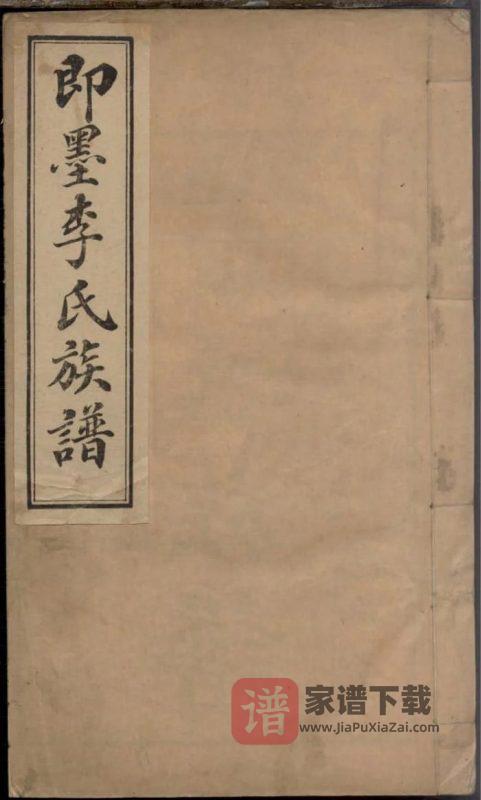 即墨李氏族譜
谱
家谱下载
www.JiaPuXiaZai.com